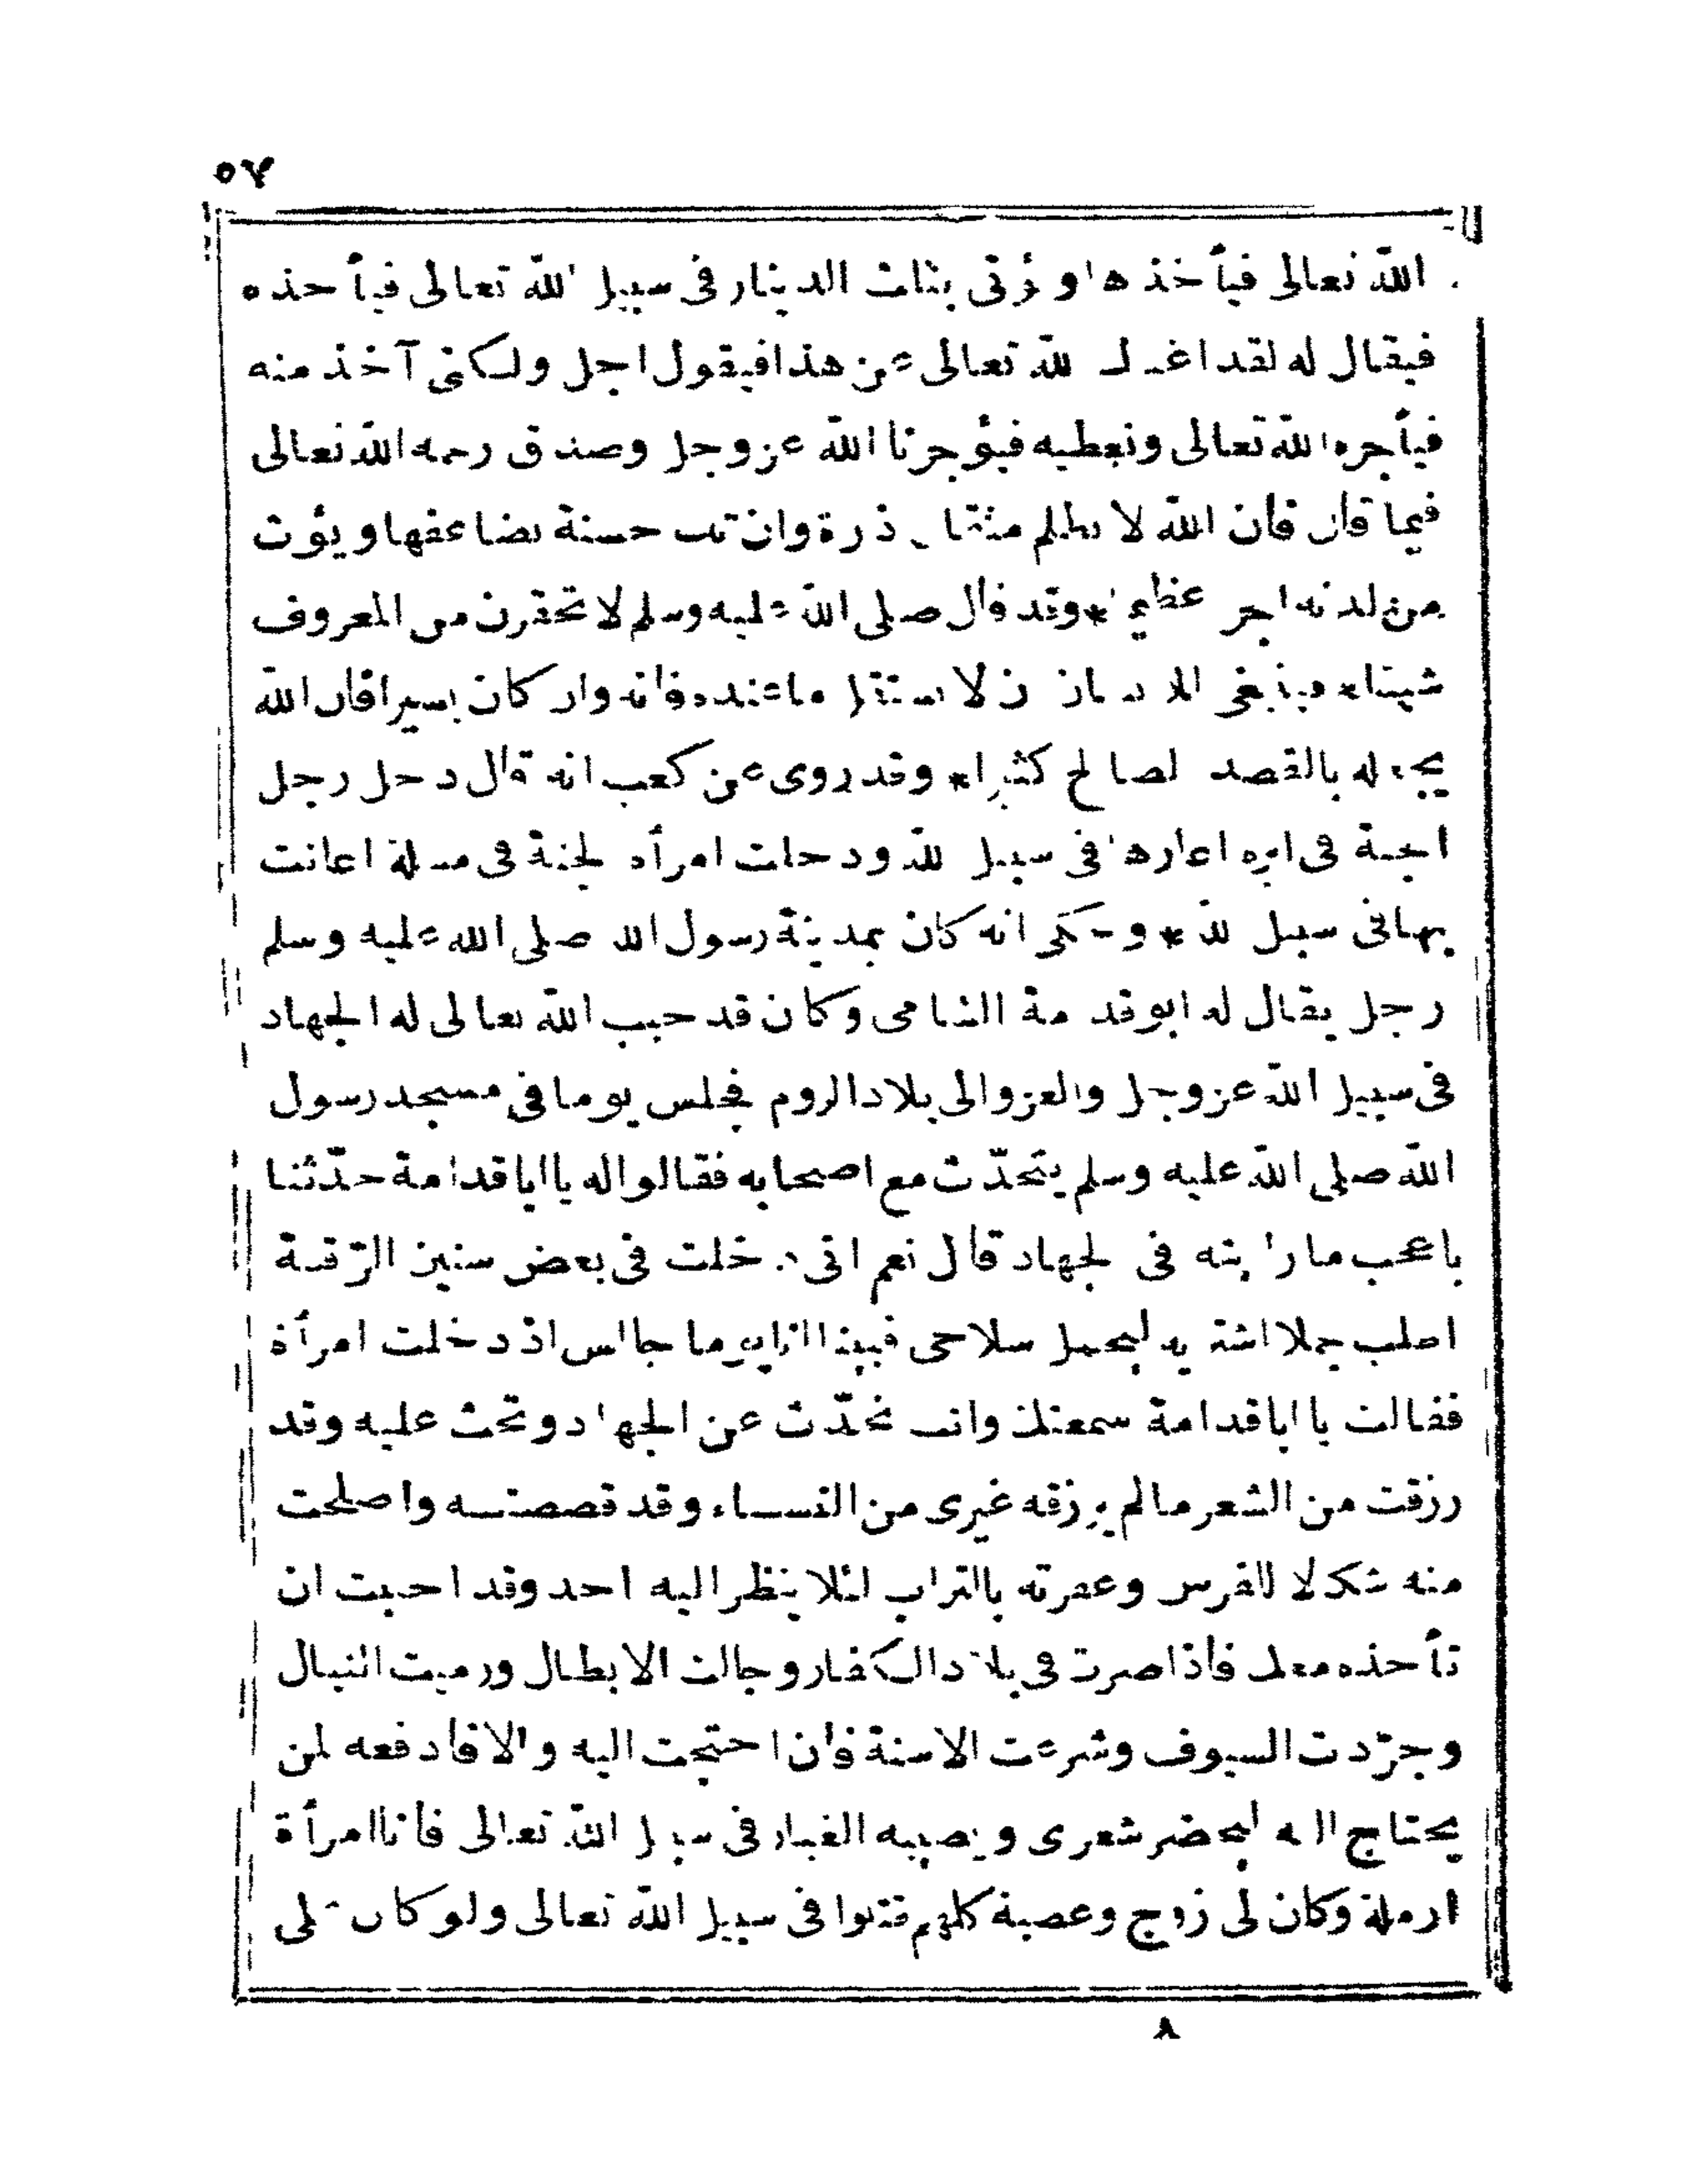 ٥٧
الله تعالى فيأخذها ويؤتى بثلث الدينار فى سبيل الله تعالى فيأخذه
فيقال له لقد الله تعالى عن هذا فيقول اجل ولكنى آخذ منه
فيأجره الله تعالى ونعطيه فيؤجرنا الله عز وجل وصدق رحمه الله تعالى
فيما قال فان الله لا يظلم مثقال ذرة وان تك حسنة يضاعفها ويؤت
من لدنه اجرا عظيما * وقد قال صلى الله عليه وسلم لا تحقرن من المعروف
شيئا * وينبغى للانسان ان لا يستقل ما عنده فانه وان كان يسيرا فان الله
يجعله بالقصد الصالح كثيرا * وقد روى عن كعب انه قال دخل رجل
الجنة فى ابرة اعارها فى سبيل الله ودخلت امرأة الجنة فى مسلة اعانت
بها فى سبيل الله * وحكى انه كان بمدينة رسول الله صلى الله عليه وسلم
رجل يقال له ابو قدامة الشامى وكان قد حبب الله تعالى له الجهاد
فى سبيل الله عز وجل والغزو الى بلاد الروم فجلس يوما فى مسجد رسول
الله صلى الله عليه وسلم يتحدّث مع اصحابه فقالوا له يا ابا قدامة حدّثنا
باعجب ما رايته فى الجهاد قال نعم انى دخلت فى بعض سنين الرّقة
اطلب جملا اشتريه ليحمل سلاحى فبينا انا يوما جالس اذ دخلت امرأة
فقالت يا ابا قدامة سمعتك وانت تحدّث عن الجهاد وتحث عليه وقد
رزقت من الشعر ما لم يرزقه غيرى من النساء وقد قصصته واصلحت
منه شكالا للفرس وعفرته بالتراب لئلا ينظر اليه احد وقد احببت ان
تأخذه معك فاذا صرت فى بلاد الكفار وجالت الابطال ورميت النبال
وجرّدت السيوف وشرعت الاسنة فان احتجت اليه والا فادفعه لمن
يحتاج اليه ليحضر شعرى ويصيبه الغبار فى سبيل الله تعالى فانا امرأة
ارملة وكان لى زوج وعصبة كلهم قتلوا فى سبيل الله تعالى ولو كان على
٨